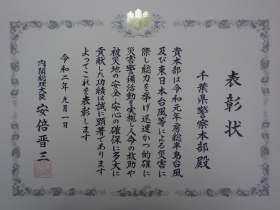 表彰状
千葉県警察本部殿
貴本部は令和元年房総半島台風
及び東日本台風等による災害に
際し総力を挙げ迅速かつ的確に
災害警備活動を実施し人命の救助や
被災地の安全・安心の確保に多大に
貢献した功績は誠に顕著であります
よってこれを表彰します
令和二年九月一日
内閣総理大臣 安倍晋三